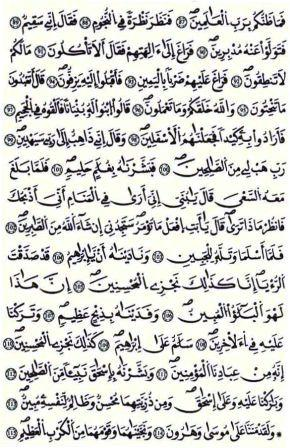 فما ظنكم برب العالمين ٨٧ فنظر نظرة في النجوم ٨٨ فقال إني سقيم ٨٩
فتولوا عنه مدبرين ٩٠ فراغ إلى ءالهتهم فقال ألا تأكلون ٩١ ما لكم
لا تنطقون ٩٢ فراغ عليهم ضربا باليمين ٩٣ فأقبلوا إليه يزفون ٩٤ قال أتعبدون
ما تنحتون ٩٥ والله خلقكم وما تعملون ٩٦ قالوا ابنوا له بنيانا فألقوه في الجحيم ٩٧
فأرادوا به كيدا فجعلناهم الأسفلين ٩٨ وقال إني ذاهب إلى ربي سيهدين ٩٩
رب هب لي من الصالحين ١٠٠ فبشرناه بغلام حليم ١٠١ فلما بلغ
معه السعي قال يا بني إني أرى في المنام أني أذبحك
فانظر ماذا ترى قال يا أبت افعل ما تؤمر ستجدني إن شاء الله من الصابرين ١٠٢
فلما أسلما وتله للجبين ١٠٣ وناديناه أن يا إبراهيم ١٠٤ قد صدقت
الرءيا إنا كذلك نجزي المحسنين ١٠٥ إن هذا
لهو البلاء المبين ١٠٦ وفديناه بذبح عظيم ١٠٧ وتركنا
عليه في الآخرين ١٠٨ سلام على إبراهيم ١٠٩ كذلك نجزي المحسنين ١١٠
إنه من عبادنا المؤمنين ١١١ وبشرناه بإسحاق نبيا من الصالحين ١١٢
وباركنا عليه وعلى إسحاق ومن ذريتهما محسن وظالم لنفسه مبين ١١٣
ولقد مننا على موسى وهارون ١١٤ ونجيناهما وقومهما من الكرب العظيم ١١٥